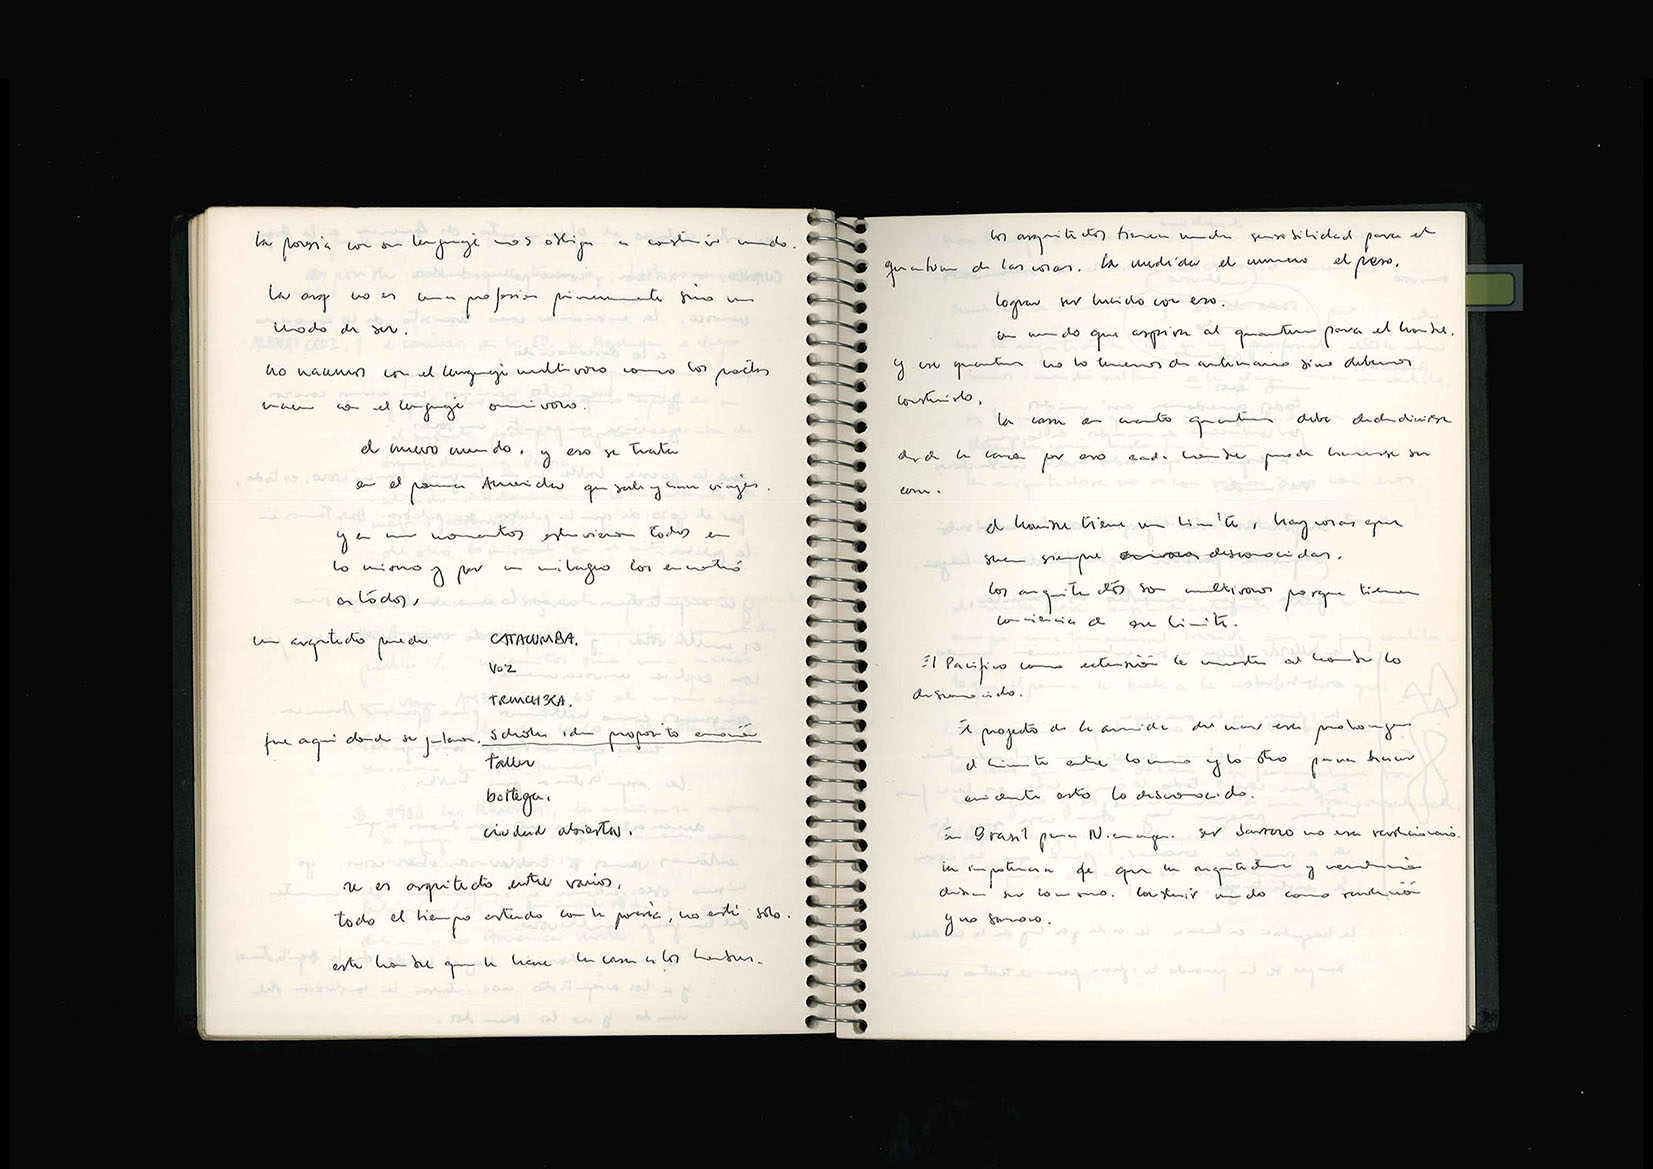 La poesía con su lenguaje nos obliga a construir mundo.
La arq no es una profesión primeramente sino un
modo de ser.
no nacemos con el lenguaje multívoro como los poetas
nacen con el lenguaje omnívoro.
el nuevo mundo, y eso se trata
en el poema Amereida que sale y hace viajes.
y en un momentos estuvieron todos en
lo mismo y por un milagro los encontró
a todos,
un arquitecto puede
CATACUMBA.
VOZ
TRINCHERA.
fue aquí donde se
taller
bottega.
ciudad abierta.
se es arquitecto entre varios.
todo el tiempo estando con la poesía, no está solo.
este hombre que le hace la casa a los hombres.
los arquitectos tienen mucha sensibilidad para el
quantum de las cosas. La medida el numero el peso.
lograr ser lucido con eso.
un mundo que aspira al quantum para el hombre.
y ese quantum no lo tenemos de antemano sino debemos
construirlo.
la casa en cuanto quantum debe
desde la casa por eso cada hombre puede hacerse su
casa.
el hombre tiene un limite, hay cosas que
sean siempre desconocidas.
los arquitectos son multívoros porque tienen
conciencia de ese limite.
El Pacifico como extensión le muestra al hombre lo
desconocido.
El proyecto de la avenida del mar era prolongar
el limite entre lo uno y lo otro para hacer
evidente esto lo desconocido.
En Brasil para Niemeyer. ser barroco no era revolucionario.
la importancia de que la arquitectura y revolución
deben ser lo mismo. Construir mundo como revolución
y no barroco.